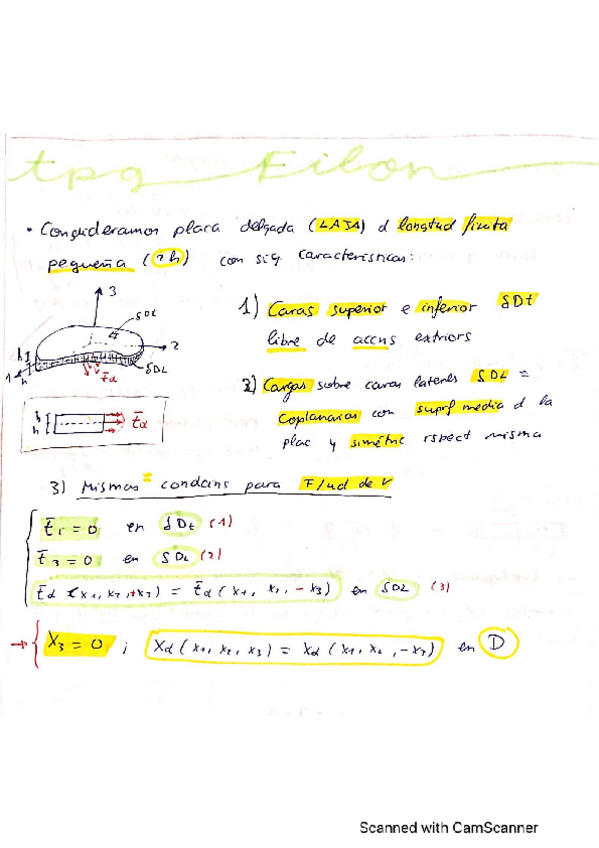 tpq Filon
• Consideramos placa delgada (LAJA) d longtud finita
pequeña (2h) con sig caracteristicas:
3
δDt
2
h
1
h
t̄α
δDL
1) Caras superior e inferior δDt
libre de accns extriors
2) Cargas sobre caras laterls δDL =
Coplanarias con suprf media d la
plac y simétric rspect misma
h
h
t̄α
3) Mismas condcins para F/ud de V
t̄i = 0 en δDt (1)
t̄3 = 0 en δDL (2)
t̄α (x1, x2, +x3) = t̄α (x1, x2, -x3) en δDL (3)
→ { X3 = 0 ; Xα (x1, x2, x3) = Xα (x1, x2, -x3) en D
Scanned with CamScanner